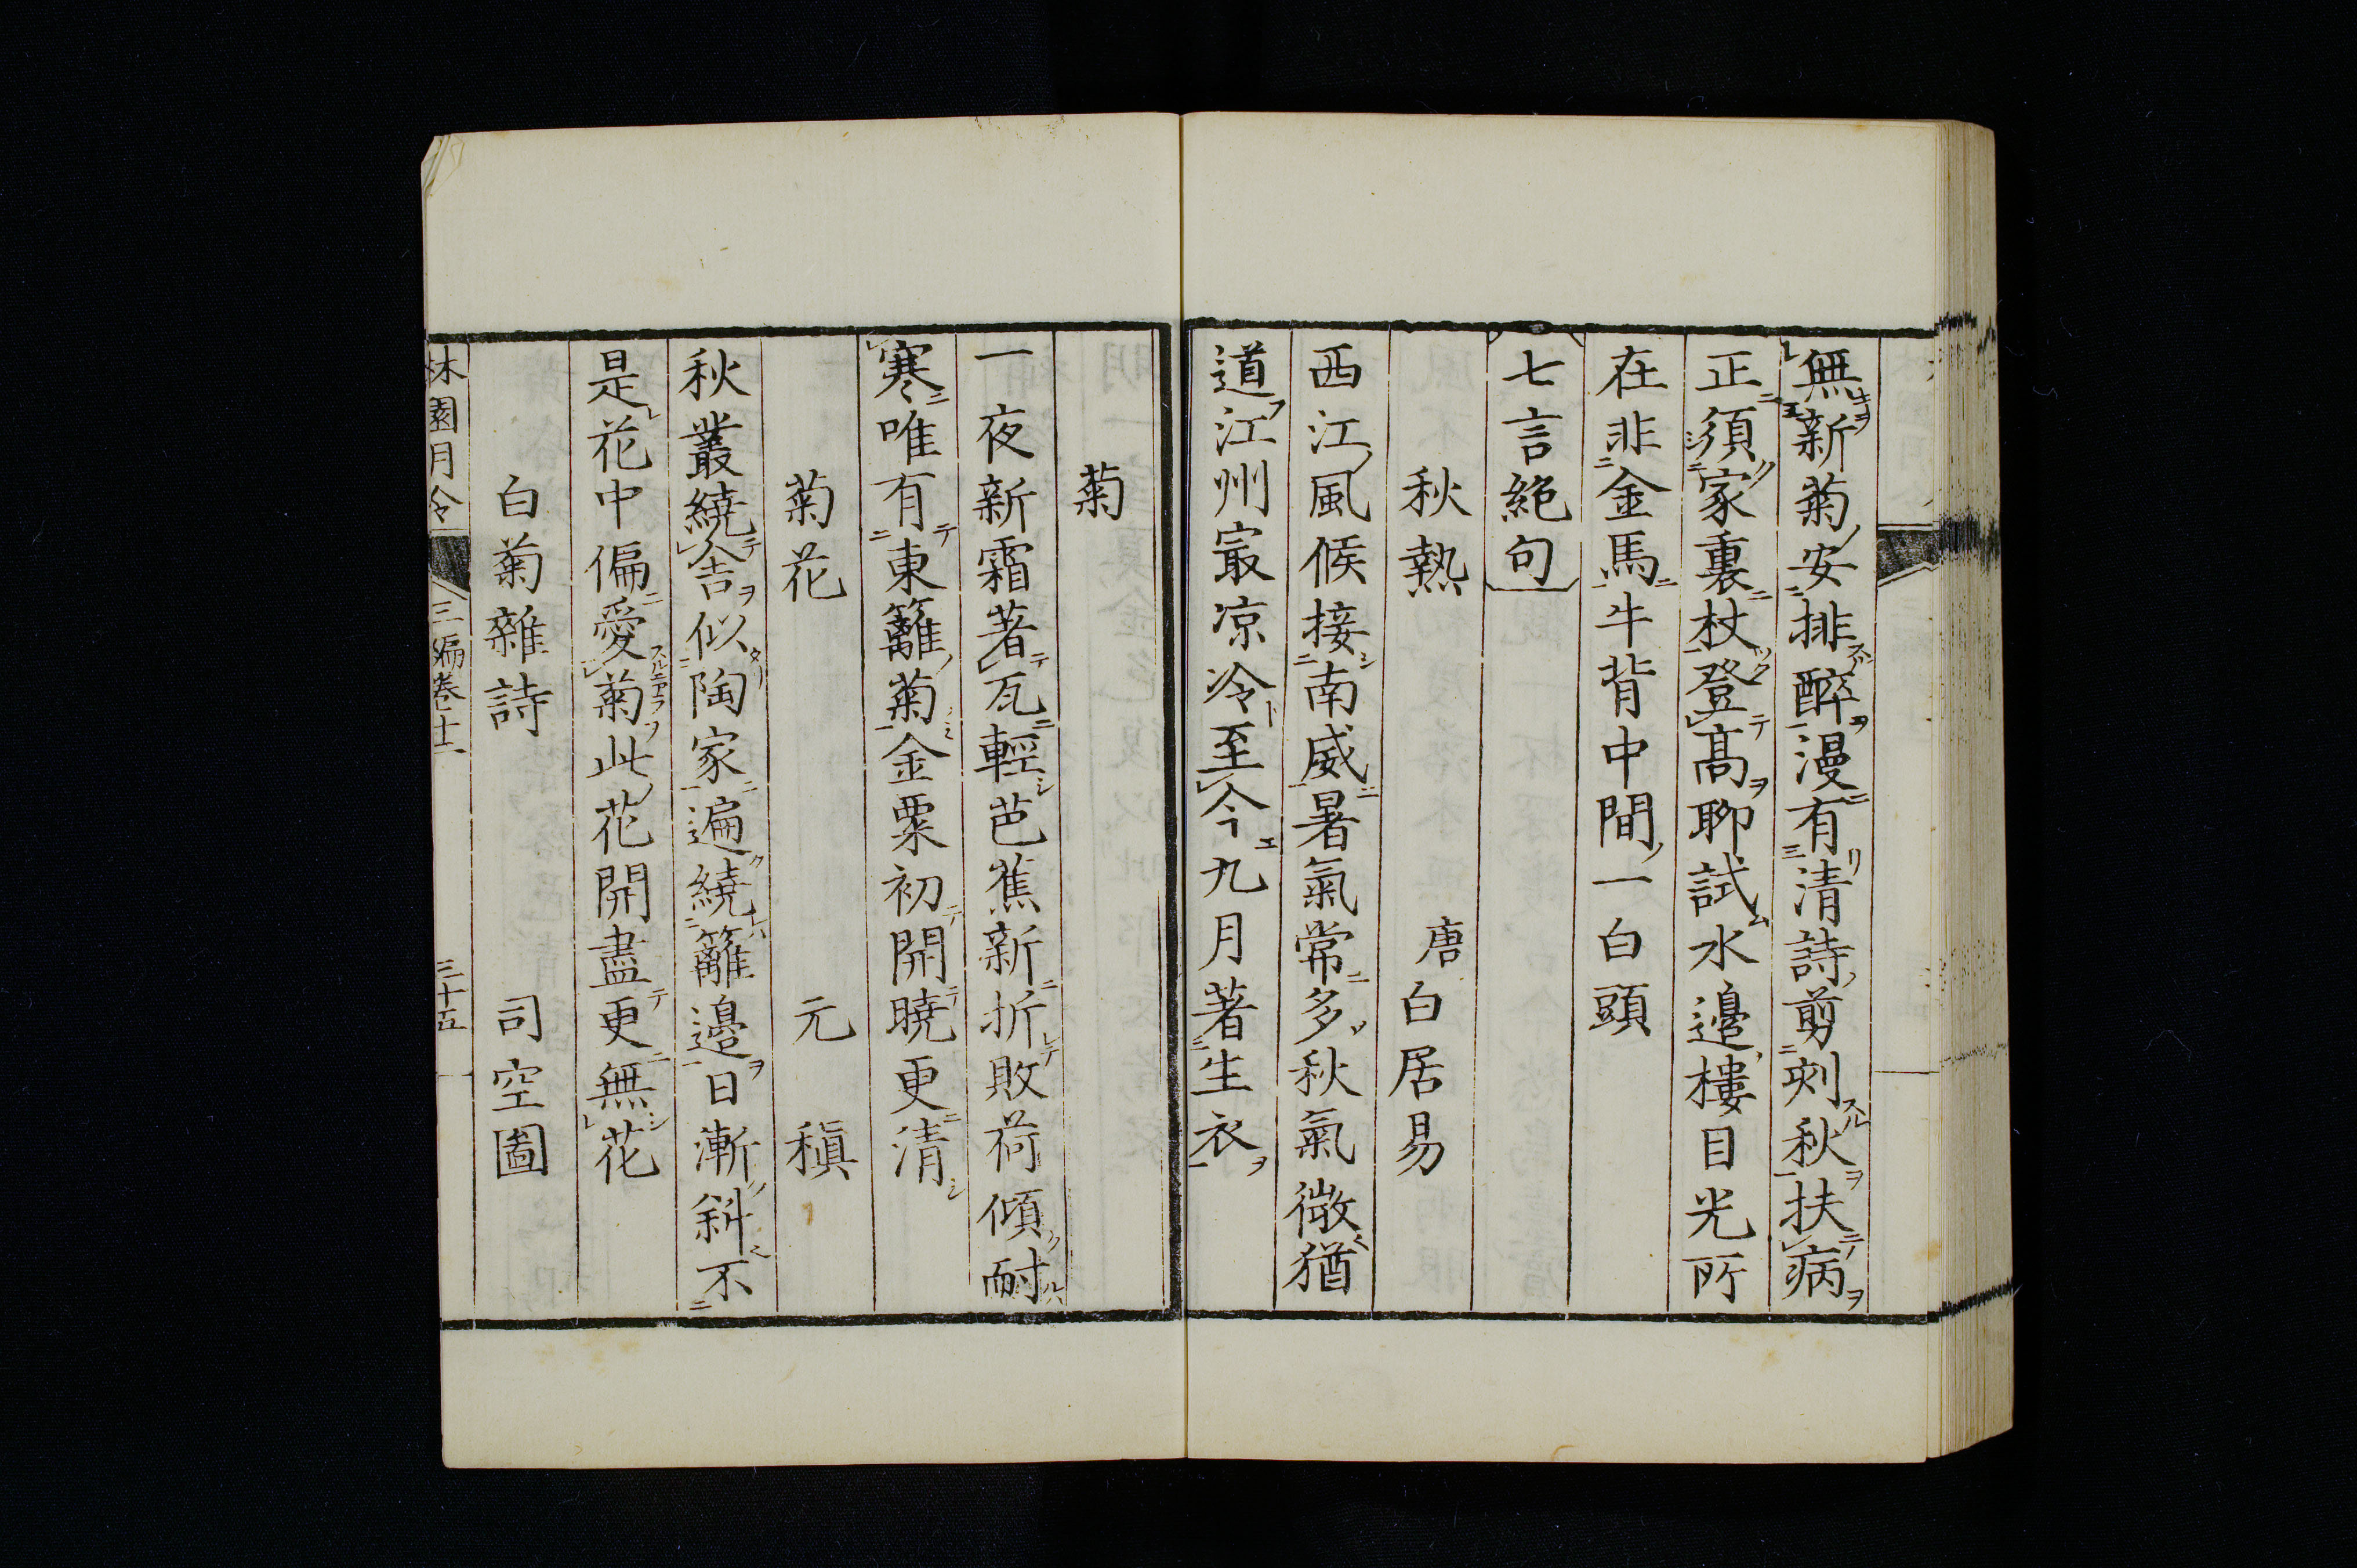 無新菊安排醉漫有清詩剪刻秋扶病
正須家裏杖登髙聊試水邉樓目光所
在非金馬牛背中間一白頭
七言絶句
秋熱　唐白居易
西江風候接南威暑氣常多秋氣微猶
道江州㝡凉冷至今九月著生衣
菊
一夜新霜著瓦輕芭蕉新折敗荷傾耐
寒唯有東籬菊金粟初開曉更清
菊花　元稹
秋叢繞舎似陶家遍繞籬邉日漸斜不
是花中偏愛菊此花開盡更無花
白菊雜詩　司空圖
林園月令　三編卷十一　三十五